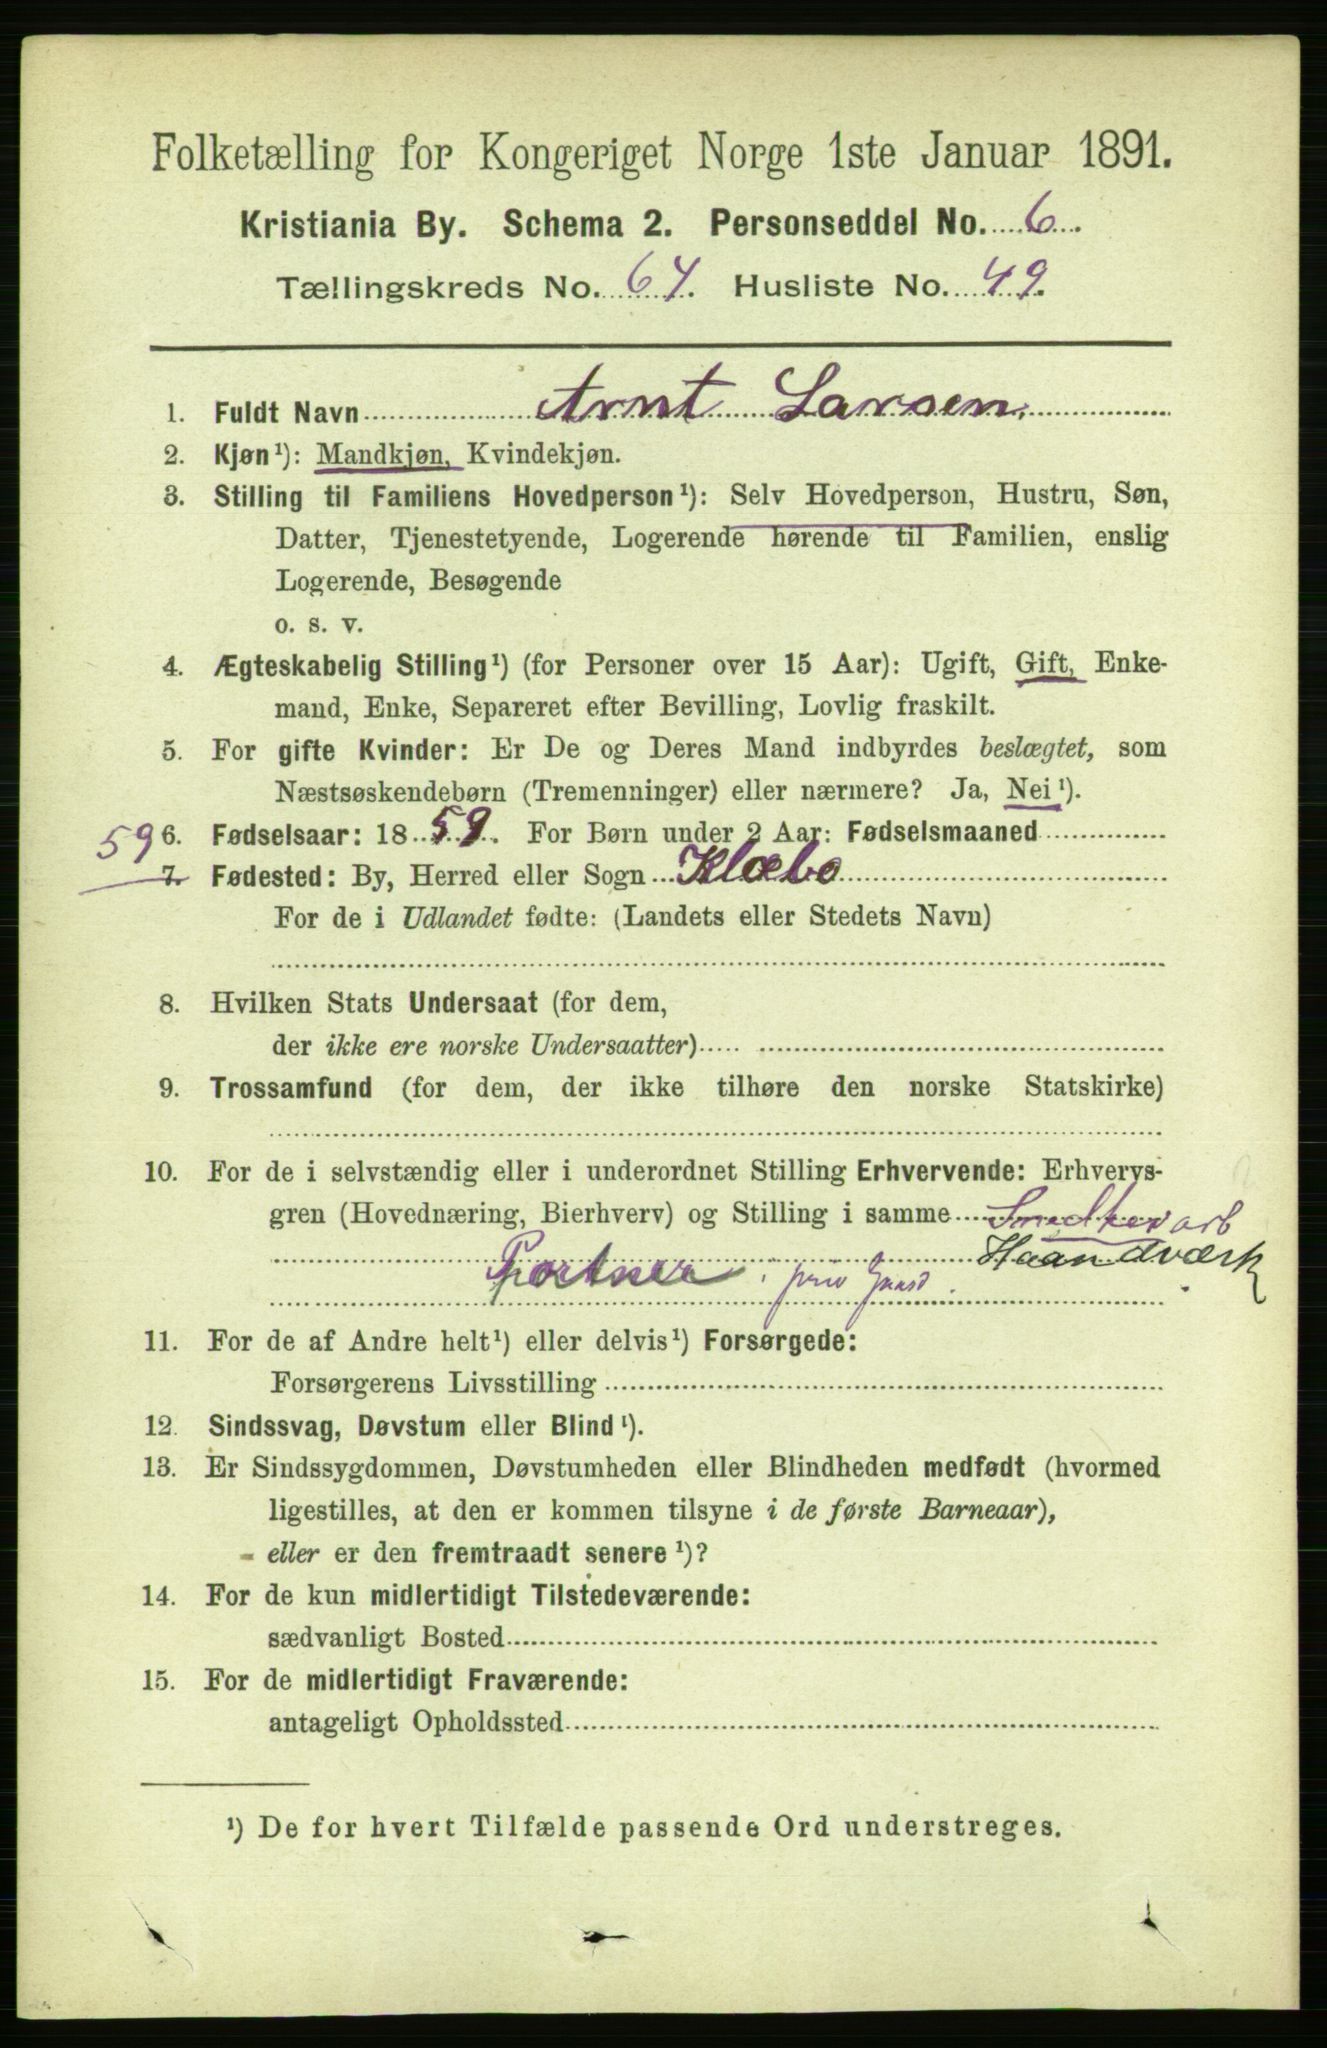 Folketælling for Kongeriget Norge 1ste Januar 1891.
Kristiania By. Schema 2. Personseddel No. 6.
Tællingskreds No. 64. Husliste No. 49.
1. Fuldt Navn Arnt Larsen.
2. Kjøn¹): Mandkjøn, Kvindekjøn.
3. Stilling til Familiens Hovedperson¹): Selv Hovedperson, Hustru, Søn,
Datter, Tjenestetyende, Logerende hørende til Familien, enslig
Logerende, Besøgende
o. s. v.
4. Ægteskabelig Stilling¹) (for Personer over 15 Aar): Ugift, Gift, Enke-
mand, Enke, Separeret efter Bevilling, Lovlig fraskilt.
5. For gifte Kvinder: Er De og Deres Mand indbyrdes beslægtet, som
Næstsøskendebørn (Tremenninger) eller nærmere? Ja, Nei¹).
59 6. Fødselsaar: 1859. For Børn under 2 Aar: Fødselsmaaned
7. Fødested: By, Herred eller Sogn Klæbo
For de i Udlandet fødte: (Landets eller Stedets Navn)
8. Hvilken Stats Undersaat (for dem,
der ikke ere norske Undersaatter)
9. Trossamfund (for dem, der ikke tilhøre den norske Statskirke)
10. For de i selvstændig eller i underordnet Stilling Erhvervende: Erhvervs-
gren (Hovednæring, Bierhverv) og Stilling i samme Snedker arb
Haandværk
Portner i priv Gaard.
11. For de af Andre helt¹) eller delvis¹) Forsørgede:
Forsørgerens Livsstilling
12. Sindssvag, Døvstum eller Blind¹).
13. Er Sindssygdommen, Døvstumheden eller Blindheden medfødt (hvormed
ligestilles, at den er kommen tilsyne i de første Barneaar),
eller er den fremtraadt senere¹)?
14. For de kun midlertidigt Tilstedeværende:
sædvanligt Bosted
15. For de midlertidigt Fraværende:
antageligt Opholdssted
¹) De for hvert Tilfælde passende Ord understreges.